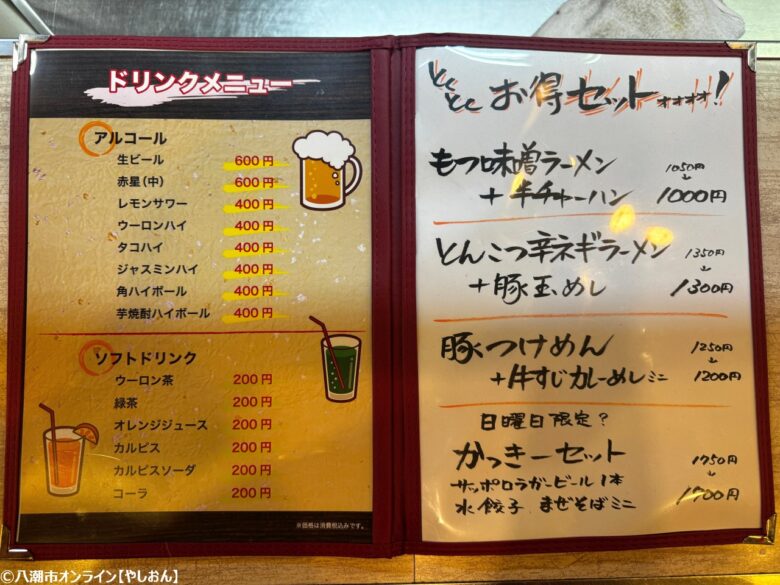 ドリンクメニュー
アルコール
生ビール 600円
赤星(中) 600円
レモンサワー 400円
ウーロンハイ 400円
タコハイ 400円
ジャスミンハイ 400円
角ハイボール 400円
芋焼酎ハイボール 400円
ソフトドリンク
ウーロン茶 200円
緑茶 200円
オレンジジュース 200円
カルピス 200円
カルピスソーダ 200円
コーラ 200円
※価格は消費税込みです。
とくとく お得セットォォォォ!
もつ味噌ラーメン 1050円
↓
+半チャーハン 1000円
とんこつ辛ネギラーメン 1350円
↓
+豚玉めし 1300円
豚つけめん 1250円
↓
+牛すじカレーめしミニ 1200円
日曜日限定?
かっきーセット 1750円
↓
サッポロラガービール1本
水餃子 まぜそばミニ 1700円
©八潮市オンライン【やしおん】